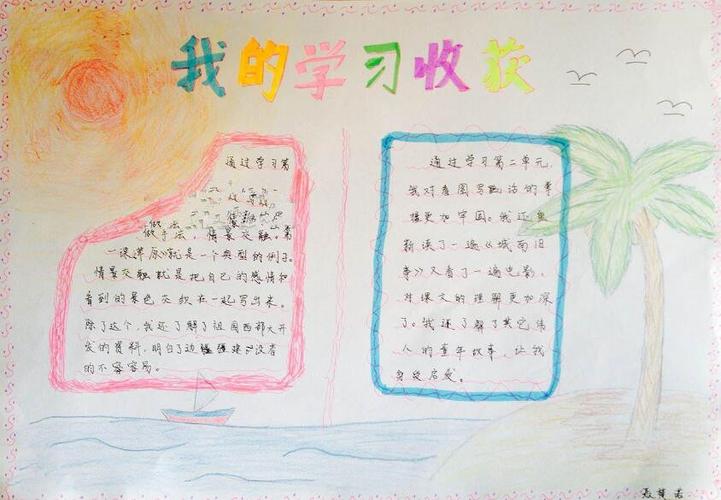 我的学习收获
通过学习第
做手法，情景交融。第
一课《草原》就是一个典型的例子。
情景交融就是把自己的感情和
看到的景色交织在一起写出来。
除了这个，我还了解了祖国西部大开
发的资料，明白了边疆建设者
的不容易。
通过学习第二单元，
我对看图写话的事
更加牢固。我还重
新读了一遍《城南旧
事》又看了一遍电影，
对课文的理解更加深
了。我还了解了其它伟
人的童年故事，让我
受启发。